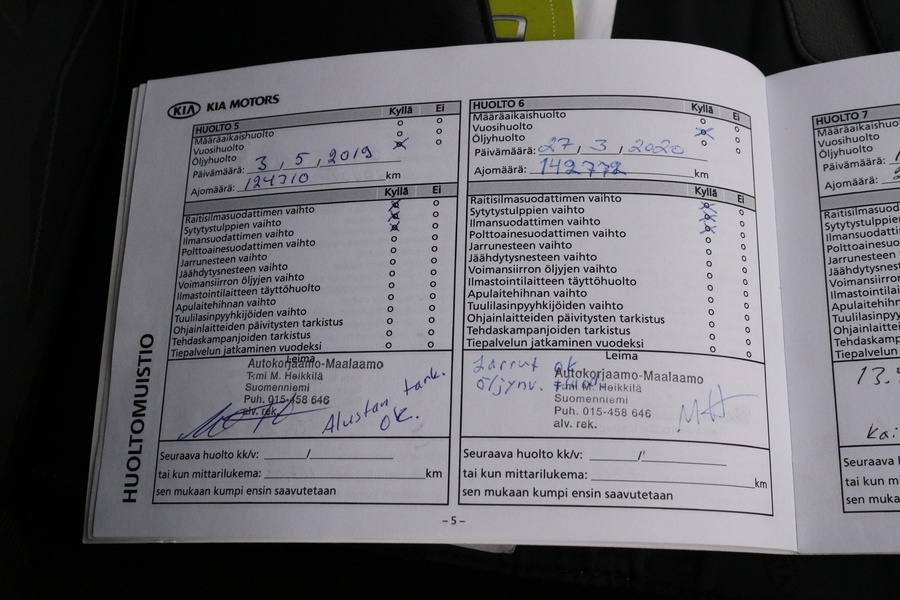 KIA KIA MOTORS
HUOLTO 5 Kyllä Ei
Määräaikaishuolto
Vuosihuolto
Öljyhuolto
Päivämäärä: 3 , 5 , 2019
Ajomäärä: 124310 km
Kyllä Ei
Raitisilmasuodattimen vaihto
Sytytystulppien vaihto
Ilmansuodattimen vaihto
Polttoainesuodattimen vaihto
Jarrunesteen vaihto
Jäähdytysnesteen vaihto
Voimansiirron öljyjen vaihto
Ilmastointilaitteen täyttöhuolto
Apulaitehihnan vaihto
Tuulilasinpyyhkijöiden vaihto
Ohjainlaitteiden päivitysten tarkistus
Tehdaskampanjoiden tarkistus
Tiepalvelun jatkaminen vuodeksi
Leima
Autokorjaamo-Maalaamo
Tomi M. Heikkilä
Suomenniemi
Puh. 015-458 646
alv. rek.
Alustan tark.
OK.
Seuraava huolto kk/v: /
tai kun mittarilukema: km
sen mukaan kumpi ensin saavutetaan
HUOLTO 6 Kyllä Ei
Määräaikaishuolto
Vuosihuolto
Öljyhuolto
Päivämäärä: 27 / 3 / 2020
Ajomäärä: 142772 km
Kyllä Ei
Raitisilmasuodattimen vaihto
Sytytystulppien vaihto
Ilmansuodattimen vaihto
Polttoainesuodattimen vaihto
Jarrunesteen vaihto
Jäähdytysnesteen vaihto
Voimansiirron öljyjen vaihto
Ilmastointilaitteen täyttöhuolto
Apulaitehihnan vaihto
Tuulilasinpyyhkijöiden vaihto
Ohjainlaitteiden päivitysten tarkistus
Tehdaskampanjoiden tarkistus
Tiepalvelun jatkaminen vuodeksi
Leima
Jarrut ok
öljynv.
Autokorjaamo-Maalaamo
Tomi M. Heikkilä
Suomenniemi
Puh. 015-458 646
alv. rek.
MH
Seuraava huolto kk/v: /
tai kun mittarilukema: km
sen mukaan kumpi ensin saavutetaan
HUOLTOMUISTIO
– 5 –
HUOLTO 7
Määräaikaishuolto
Vuosihuolto
Öljyhuolto
Päivämäärä:
Ajomäärä:
Raitisilmasuod
Sytytystulppien
Ilmansuodatti
Polttoainesuo
Jarrunesteen
Jäähdytysnes
Voimansiirro
Ilmastointila
Apulaitehihn
Tuulilasinpy
Ohjainlaitte
Tehdaskam
Tiepalvelu
13.
Kai
Seuraava h
tai kun m
sen muka